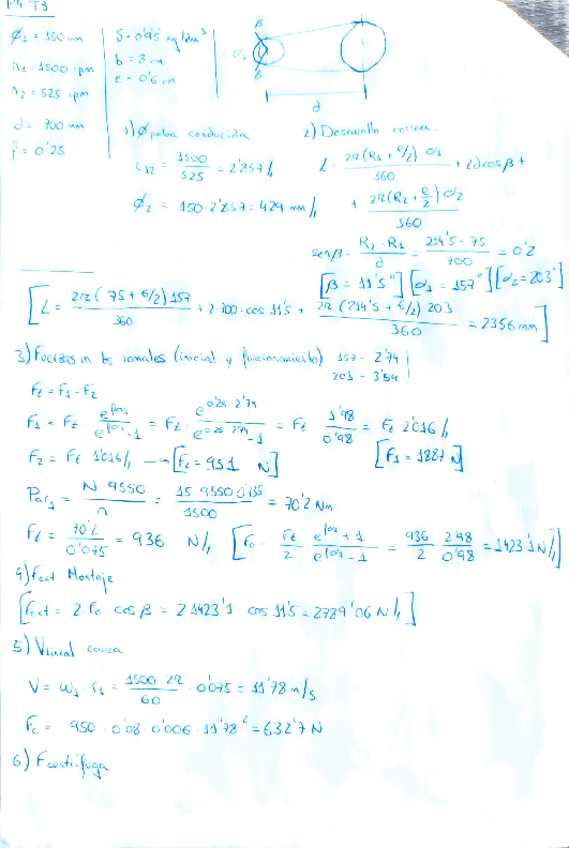 P4 T3
ϕ1 = 150 mm
n1 = 1500 rpm
n2 = 525 rpm
d = 700 mm
f = 0'25
δ = 0'95 kg/dm³
b = 8 cm
e = 0'6 cm
β
α1
β
d
1) ϕ polea conducida
i12 = 1500/525 = 2'857 //
ϕ2 = 150 · 2'857 = 429 mm //
2) Desarrollo correa.
L = 2π(R1 + e/2) α1 / 360 + 2d cos β +
+ 2π(R2 + e/2) α2 / 360
sen β = (R2 - R1)/d = (214'5 - 75)/700 = 0'2
[β = 11'5°] [α1 = 157°] [α2 = 203°]
[L = 2π(75 + 6/2) 157 / 360 + 2·700 · cos 11'5 + 2π(214'5 + 6/2) 203 / 360 = 2356 mm]
3) Fuerzas en los ramales (inicial y funcionamiento)
157 - 2'74
203 - 3'54
Ft = F1 - F2
F1 = Ft e^fα1 / (e^fα1 - 1) = Ft · e^0'25 2'74 / (e^0'25 2'74 - 1) = Ft 1'98/0'98 = Ft 2'016 //
F2 = Ft 1'016 // → [F2 = 951 N]
[F1 = 1887 N]
Par1 = N 9550 / n = 15 · 9550 0'735 / 1500 = 70'2 Nm
Ft = 70'2 / 0'075 = 936 N //
[F0 = Ft/2 (e^fα1 + 1)/(e^fα1 - 1) = 936/2 2'98/0'98 = 1423'1 N //]
4) Fext Montaje
[Fext = 2 · F0 · cos β = 2 1423'1 · cos 11'5 = 2789'06 N //]
5) V lineal correa
V = ω1 · r1 = 1500 2π / 60 · 0'075 = 11'78 m/s
Fc = 950 · 0'08 · 0'006 · 11'78² = 632'7 N
6) F centrífuga